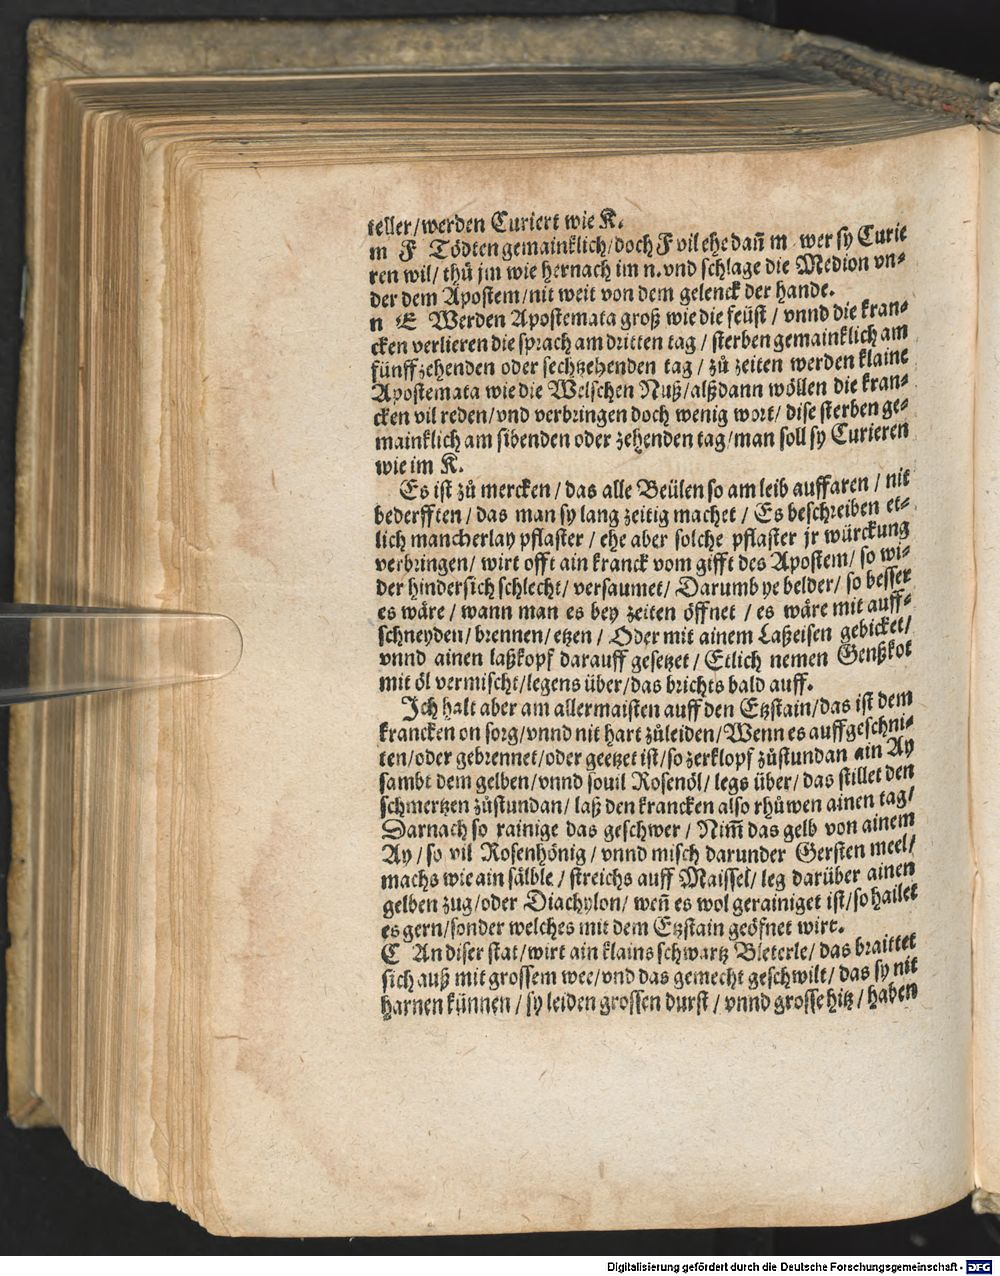 teller/werden Curiert wie K.
m F Tödten gemainklich/doch F vil ehe dañ m wer sy Curie
ren wil/ thů jm wie hernach im n. vnd schlage die Median vn⸗
der dem Apostem/nit weit von dem gelenck der hande.
n E Werden Apostemata groß wie die feüst / vnnd die kran⸗
cken verlieren die sprach am dritten tag / sterben gemainklich am
fünffzehenden oder sechtzehenden tag / zů zeiten werden klaine
Apostemata wie die Welschen Nuß/alßdann wöllen die kran⸗
cken vil reden/vnd verbringen doch wenig wort/ dise sterben ge⸗
mainklich am sibenden oder zehenden tag/man soll sy Curieren
wie im K.
Es ist zů mercken / das alle Beülen so am leib auffaren / nit
bederfften / das man sy lang zeitig machet / Es beschreiben et⸗
lich mancherlay pflaster / ehe aber solche pflaster jr würckung
verbringen/ wirt offt ain kranck vom gifft des Apostem/ so wi⸗
der hindersich schlecht/ versaumet/ Darumb ye belder/ so besser
es wäre / wann man es bey zeiten öffnet / es wäre mit auff⸗
schneyden/ brennen/ etzen / Oder mit ainem Laßeisen gebicket/
vnnd ainen laßkopf darauff gesetzet/ Etlich nemen Genßkot
mit öl vermischt/legens über/das brichts bald auff.
Ich halt aber am allermaisten auff den Etzstain/das ist dem
krancken on sorg/vnnd nit hart zůleiden/Wenn es auffgeschni⸗
ten/oder gebrennet/oder geetzet ist/so zerklopf zůstundan ain Ay
sambt dem gelben/vnnd souil Rosenöl/ legs über/ das stillet den
schmertzen zůstundan/ laß den krancken also rhůwen ainen tag/
Darnach so rainige das geschwer / Nim̃ das gelb von ainem
Ay/ so vil Rosenhönig / vnnd misch darunder Gersten meel/
machs wie ain sälble / streichs auff Maissel/ leg darüber ainen
gelben zug/oder Diachylon/ weñ es wol gerainiget ist/so hailet
es gern/sonder welches mit dem Etzstain geöfnet wirt.
C An diser stat/wirt ain klains schwartz Bleterle/ das braittet
sich auß mit grossem wee/vnd das gemecht geschwilt/ das sy nit
harnen künnen / sy leiden grossen durst / vnnd grosse hitz / haben
Digitalisierung gefördert durch die Deutsche Forschungsgemeinschaft - DFG